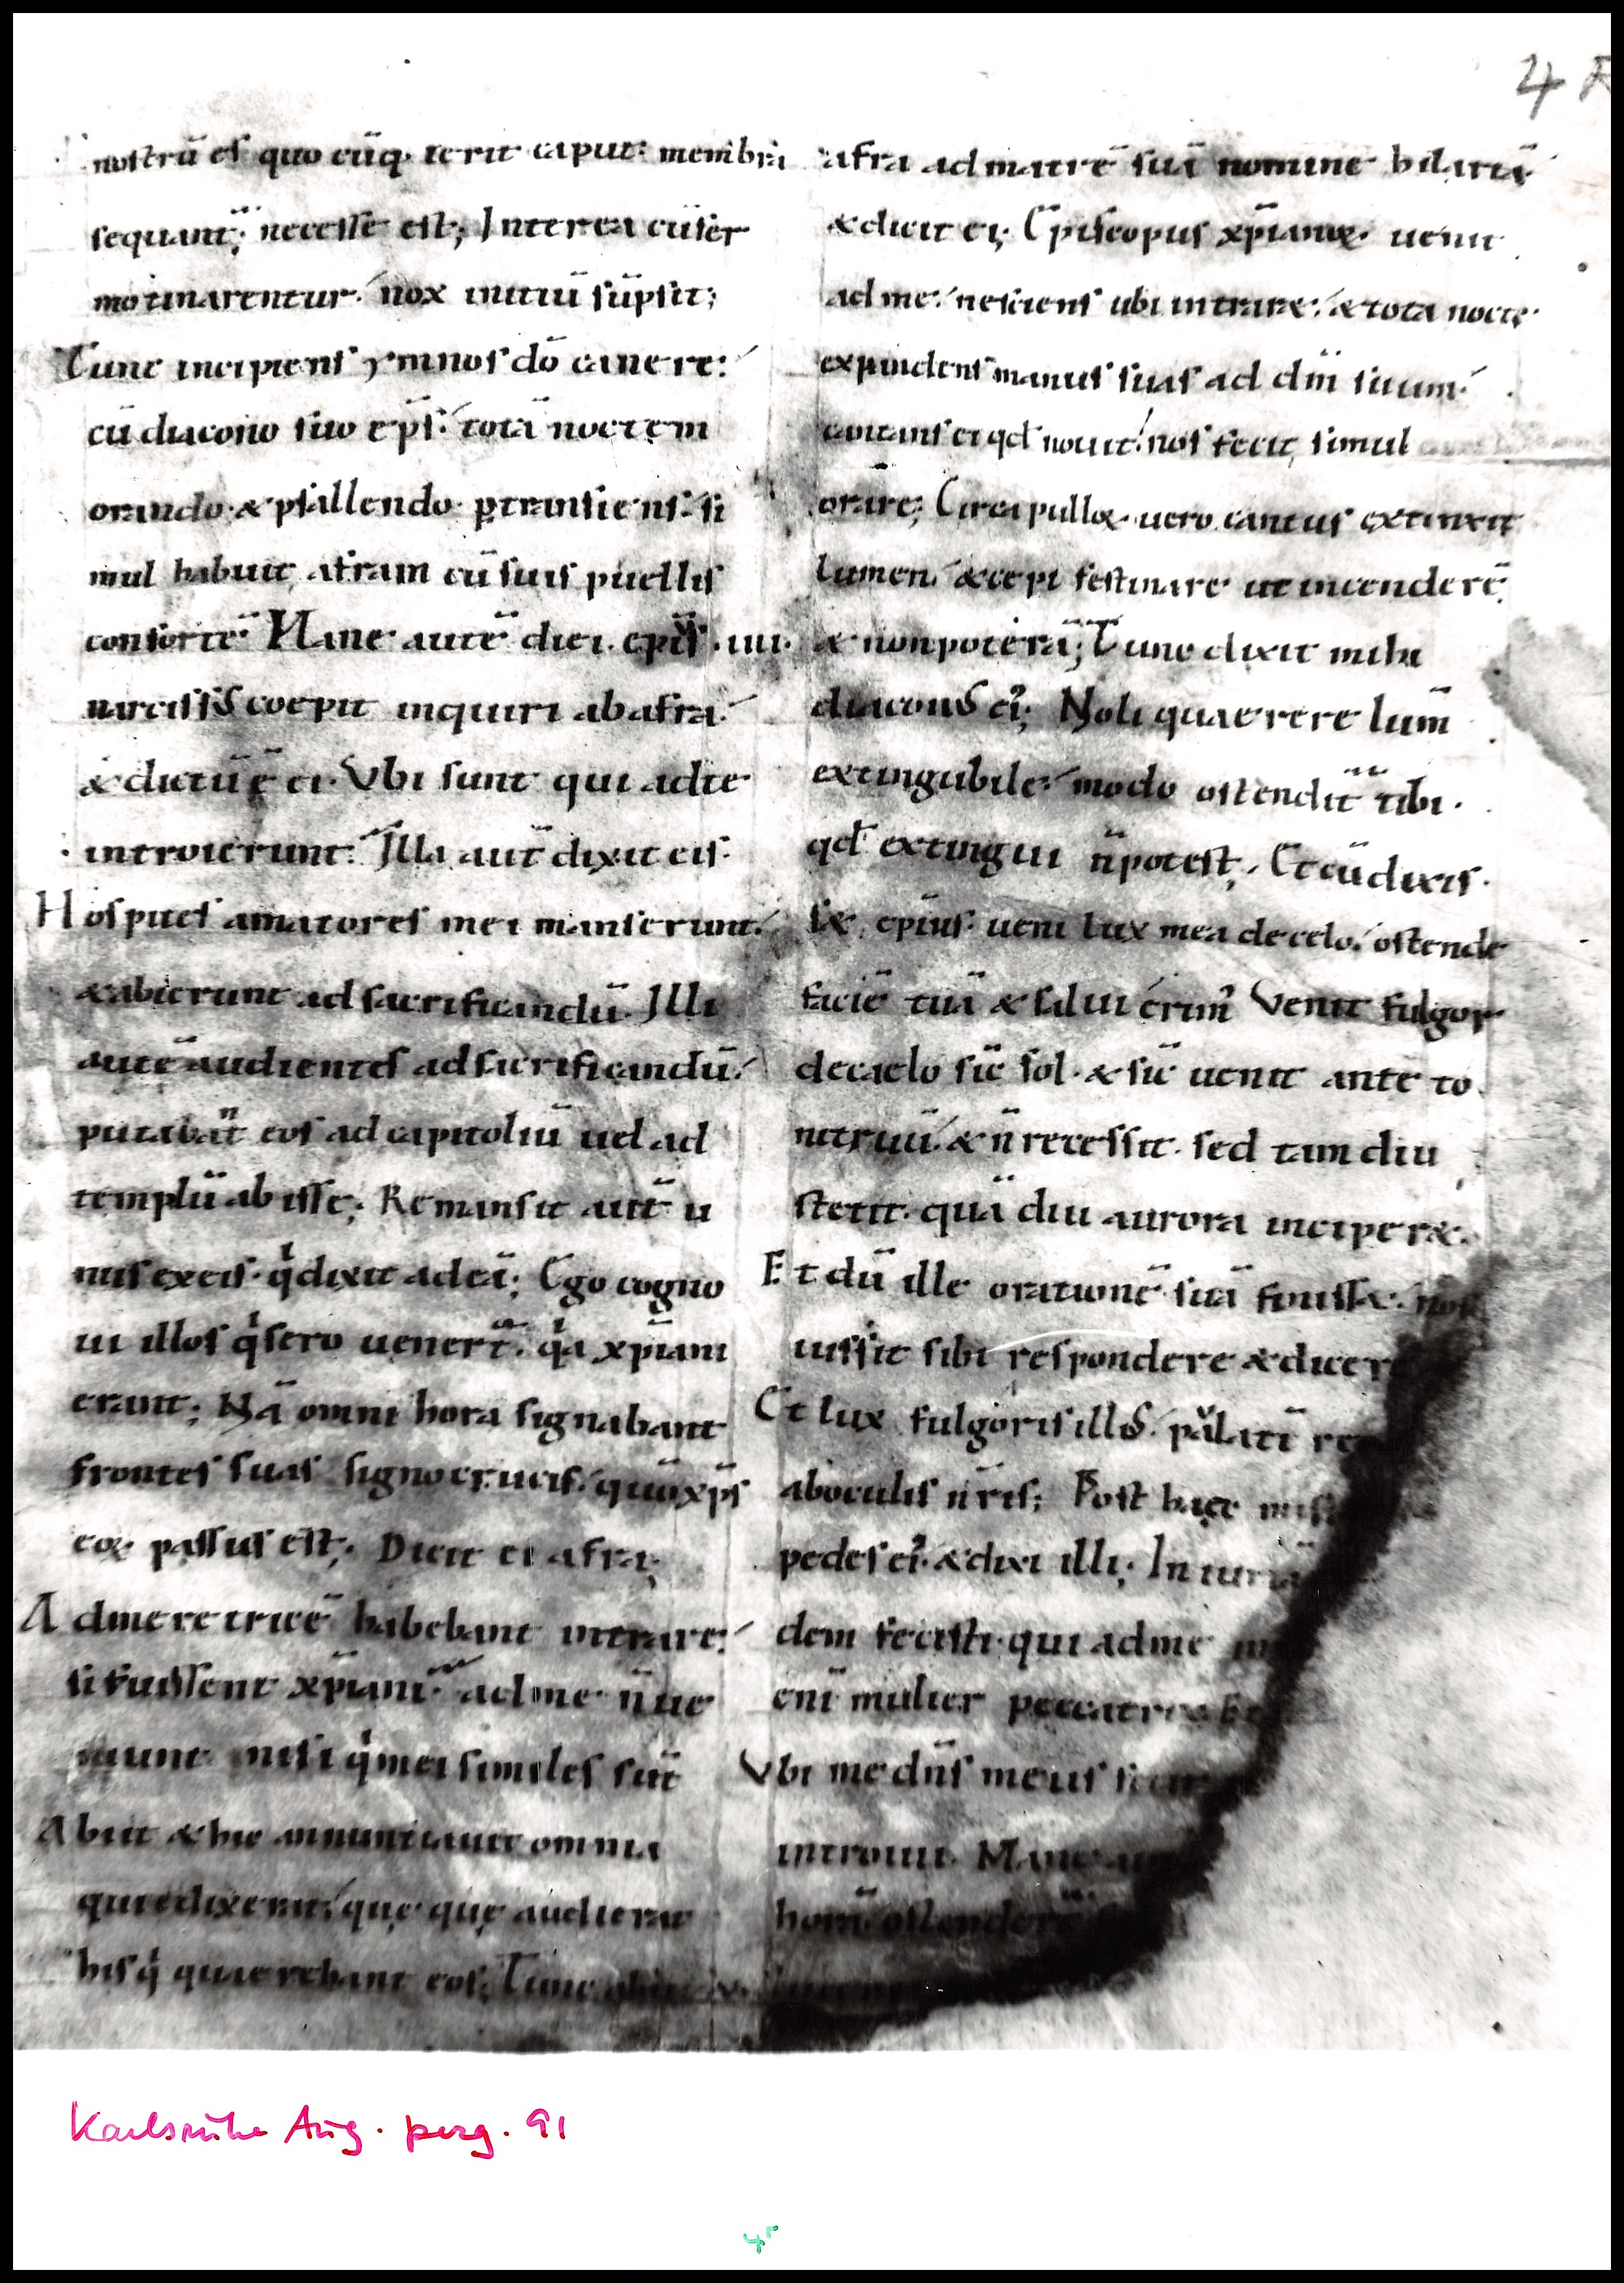 4 R
nostrū es quo cūq· ierit caput: membra
sequant̄; necesse est; Interea cū ser
mōtinarentur· nox initiū sūpsit;
Tunc incipiens ymnos dō canere:
cū diacono suo ep̄s· totā noctem
orando & psallendo· ꝑtransiens· si
mul habuit afram cū suis puellis
consortē· Hanc autē diei· ep̄s· iiii·
narcissus coepit inquiri ab afra·
& dictū ē ei· Vbi sunt qui ad te
introierunt· Illa aut̄ dixit eis·
Hospites amatores mei manserunt·
& abierunt ad sacrificandū· Illi
autē audientes ad sacrificandū·
putabāt eos ad capitoliū uel ad
templū abisse; Remansit aut̄ u
nus ex eis· q' dixit ad eā; Ego cogno
ui illos q' sero uener̄t· q'a xp̄iani
erant; Nā omni hora signabant
frontes suas signo crucis· quō xp̄s
eoꝝ passus est; Dicit ei afra;
Ad meretricē habebant intrare·
si fuissent xp̄iani· ad me n̄ ue
niunt nisi q' mei similes sūt
Abiit & hic annuntiauit omnia
que dixerat· que que audierat
his q' quaerebant eos; Tunc
afra ad matrē suā nomine hilariā
& dicit ei; Ep̄iscopus xp̄ianoꝝ· uenit
ad me· nesciens ubi intraret· & tota nocte
expandens manus suas ad dn̄m suum·
cantans ei qd̄ nouit· nos fecit simul
orare; Circa pulloꝝ uero cantus extinxit
lumen· & cepi festinare ut incenderē
& non poterā; Tunc dixit mihi
diaconus ei'; Noli quaerere lum̄
extinguibile· modo ostendit̄ tibi·
qd̄ extingui n̄ potest; Et cū dixis
s&, ep̄ius· ueni lux mea de celo· ostende
faciē tuā & salui erim' Venit fulgor
de caelo sic̄ sol· & sic̄ uenit ante to
nitruū· & n̄ recessit· sed tam diu
stetit· quā diu aurora inciper&·
Et dū ille orationē suā finiss&· nos
iussit sibi respondere & dicer
Et lux fulgoris illius· palati
ab oculis n̄ris; Post haec
pedes ei'· & dixi illi; In
dem fecisti· qui ad me
eni mulier peccatrix
Vbi me dn̄s meus
introiui·
horā ostenderē
Karlsruhe Aug. perg. 91
4r